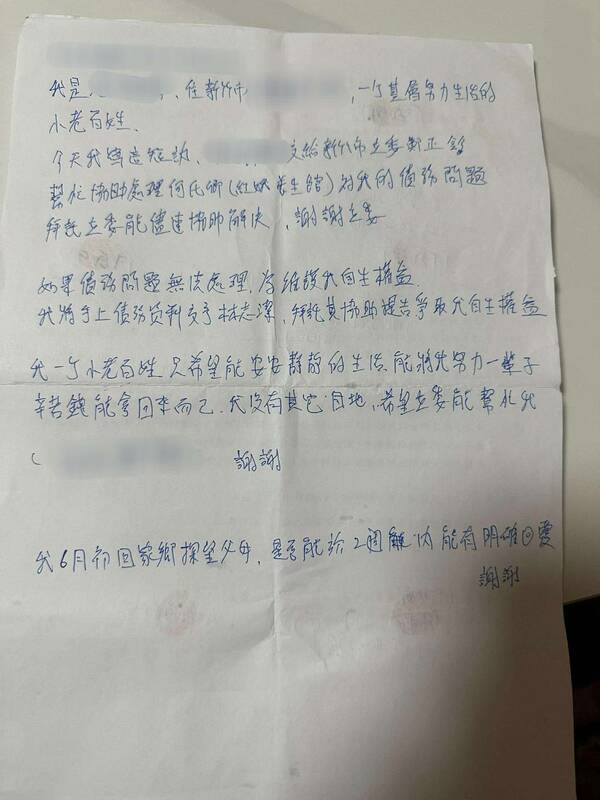 我是 、住新竹市 ,一个基層努力生活的
小老百姓.
今天我寫這短訪、 交給新竹市立委鄭正鈐
幫忙協助處理何氏卿(紅娘養生館)对我的債務問題
拜託立委能儘速協助解決,謝謝立委
如果債務問題無法處理,為維護我自生權益.
我將手上債務資料交予林志潔,拜託其協助提告爭取我自生權益
我一个小老百姓只希望能安安靜靜的生活,能將我努力一輩子
辛苦錢能拿回來而已.我沒有其它目地,希望立委能幫忙我
謝謝
我6月初回家鄉探望父母,是否能於2週內能有明確回覆
謝謝